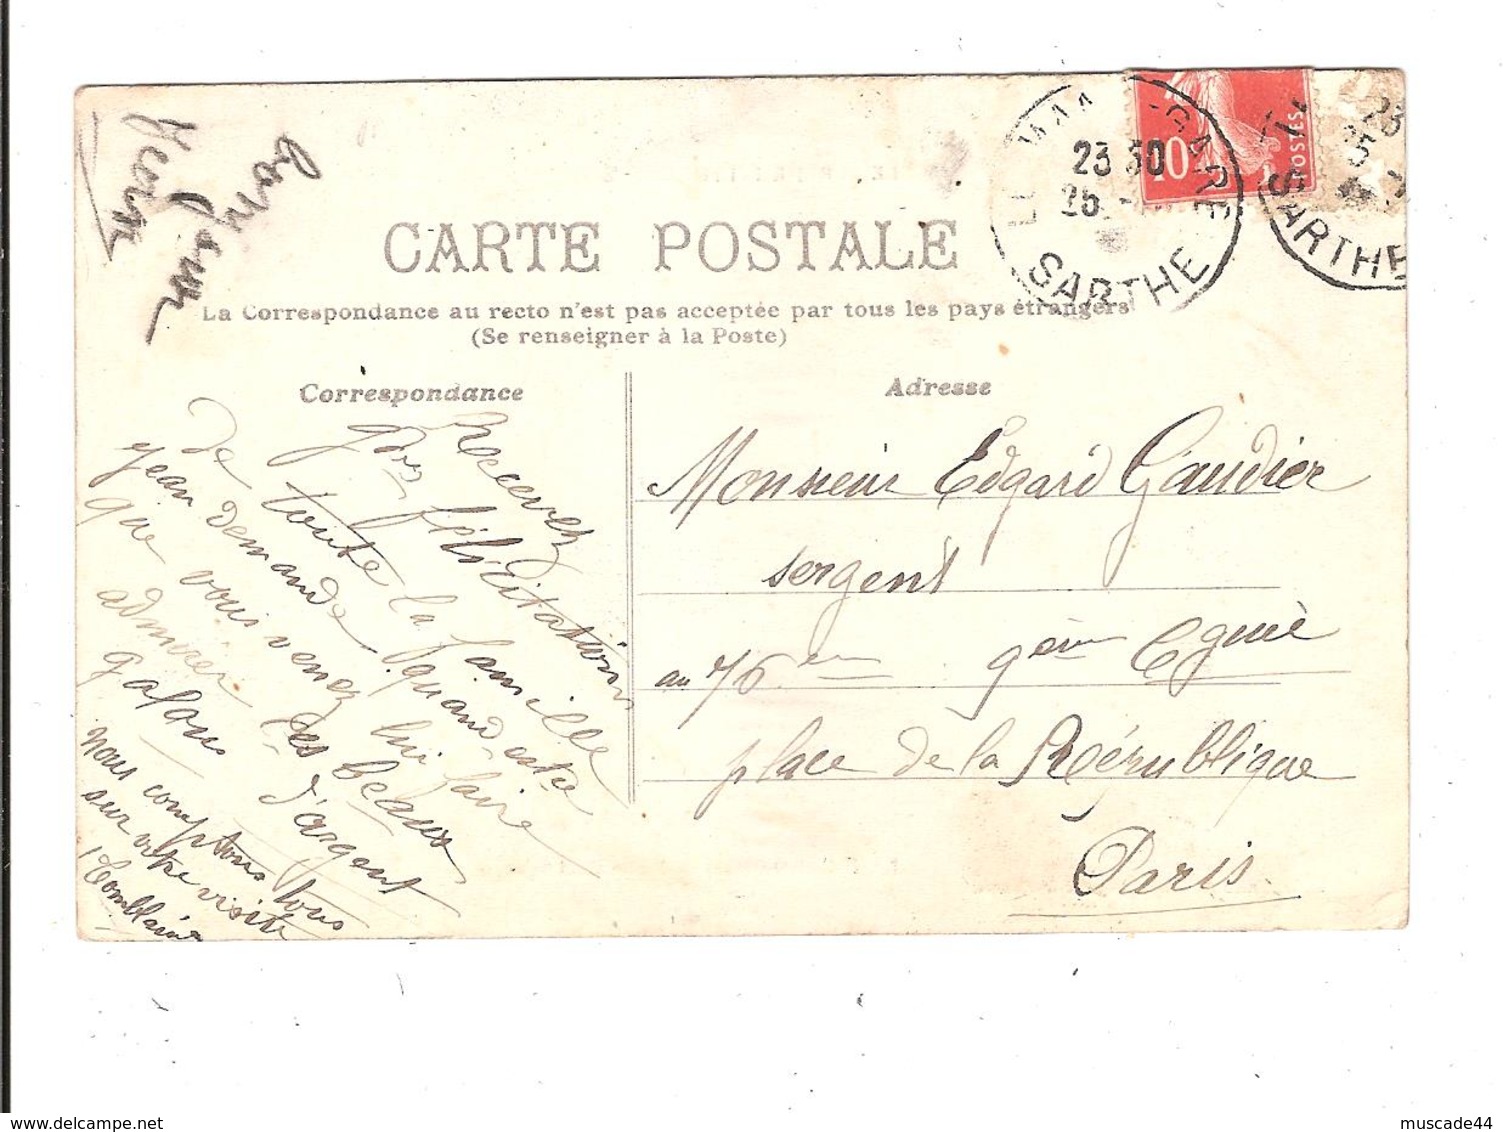 CARTE POSTALE
La Correspondance au recto n'est pas acceptée par tous les pays étrangers
(Se renseigner à la Poste)
Correspondance
Adresse
10
POSTES
23 30
25
SARTHE
23
25
SARTHE
Recevez
félicitations
de toute la famille
Jean demande quand est ce
que vous venez lui faire
admirer les beaux
galons d'argent
nous comptons tous
sur votre visite
Monsieur Edgard Gaudier
sergent
au 76eme 9eme Cgnie
place de la République
Paris
delcampe.net
muscade44